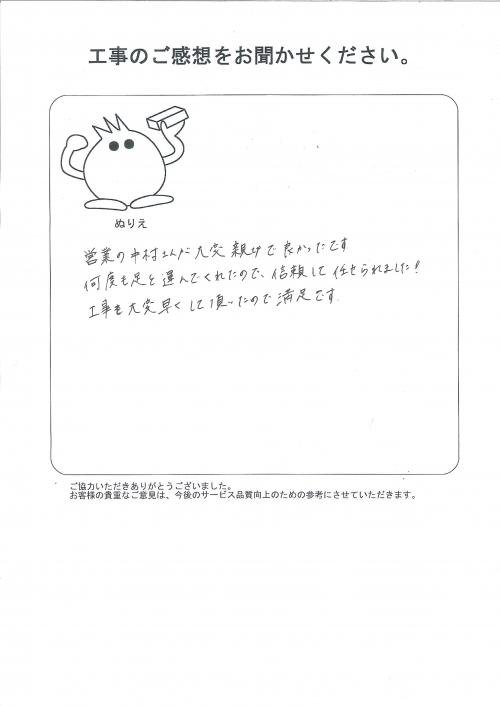 工事のご感想をお聞かせください。
ぬりえ
営業の中村さんが大変親切で良かったです
何度も足を運んでくれたので、信頼して任せられました!
工事も大変早くして頂いたので満足です.
ご協力いただきありがとうございました。
お客様の貴重なご意見は、今後のサービス品質向上のための参考にさせていただきます。